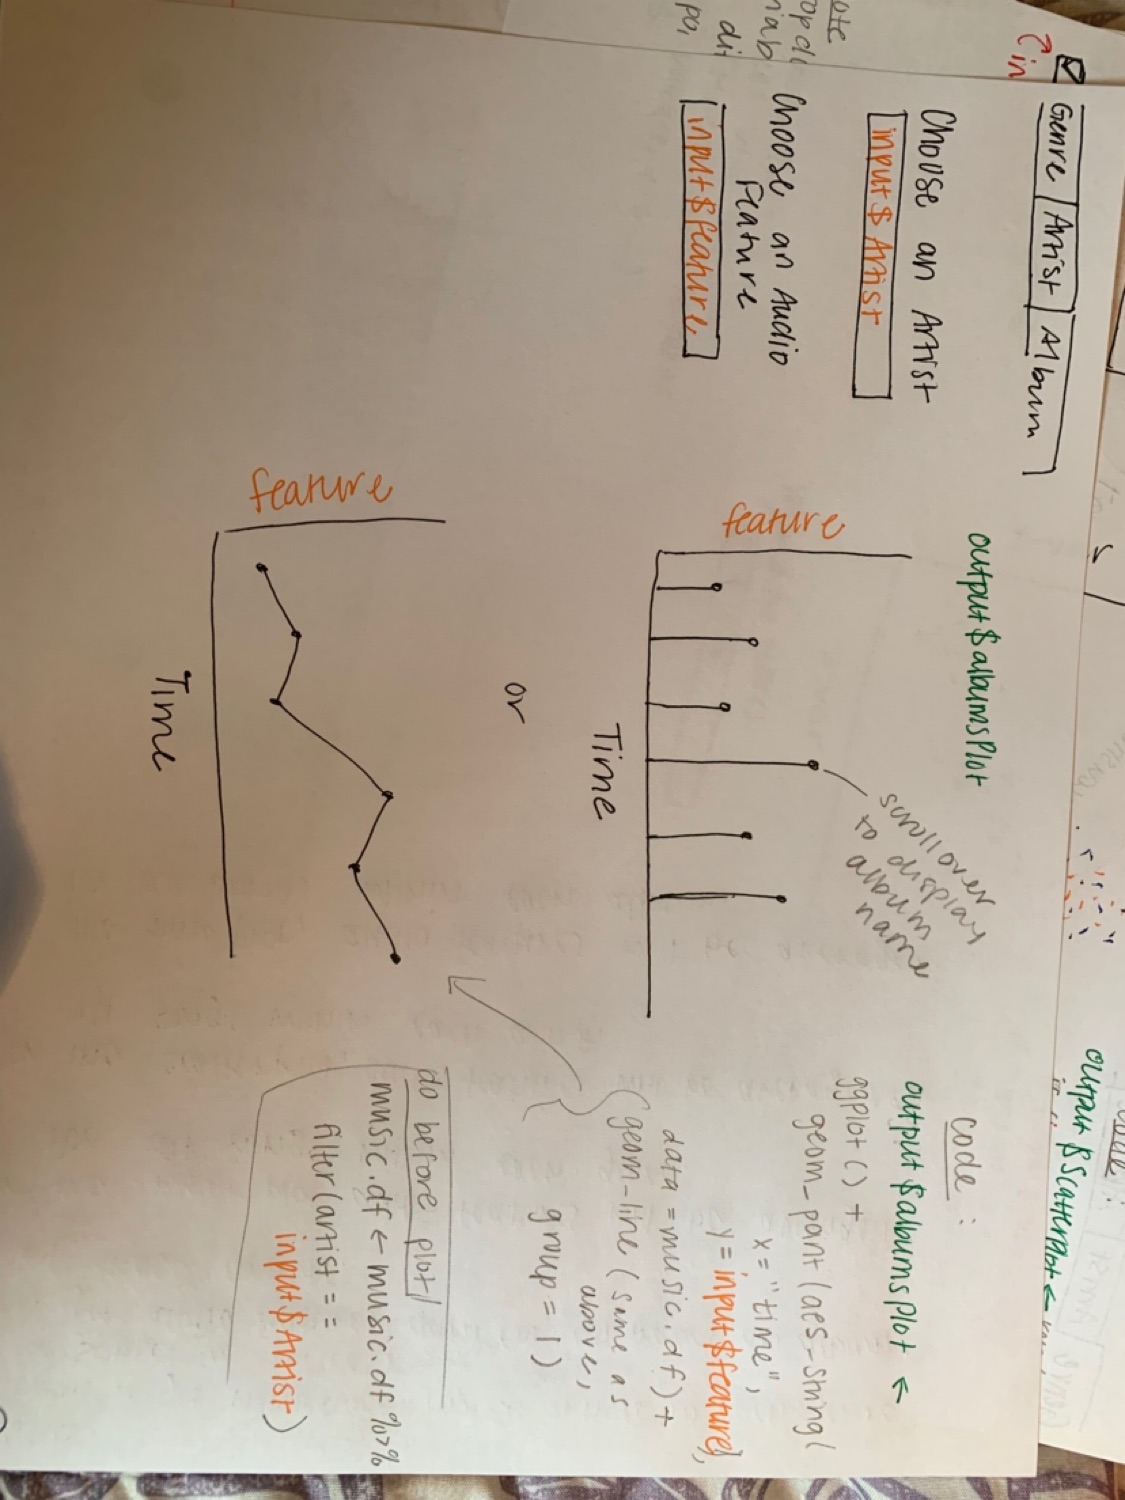 Genre | Artist | Album
in
Choose an Artist
input$Artist
Choose an Audio
Feature
input$feature
ote
di
po,
output$albumsPlot
scroll over
to display
album
name
feature
Time
or
feature
Time
code:
output$Scatterplot ←
code:
output$albumsPlot ←
ggplot() +
geom_pant(aes_string(
x = "time",
y = input$feature),
data = music.df) +
geom_line(same as
above,
group = 1)
do before plot
music.df ← music.df %>%
filter(artist ==
input$Artist)